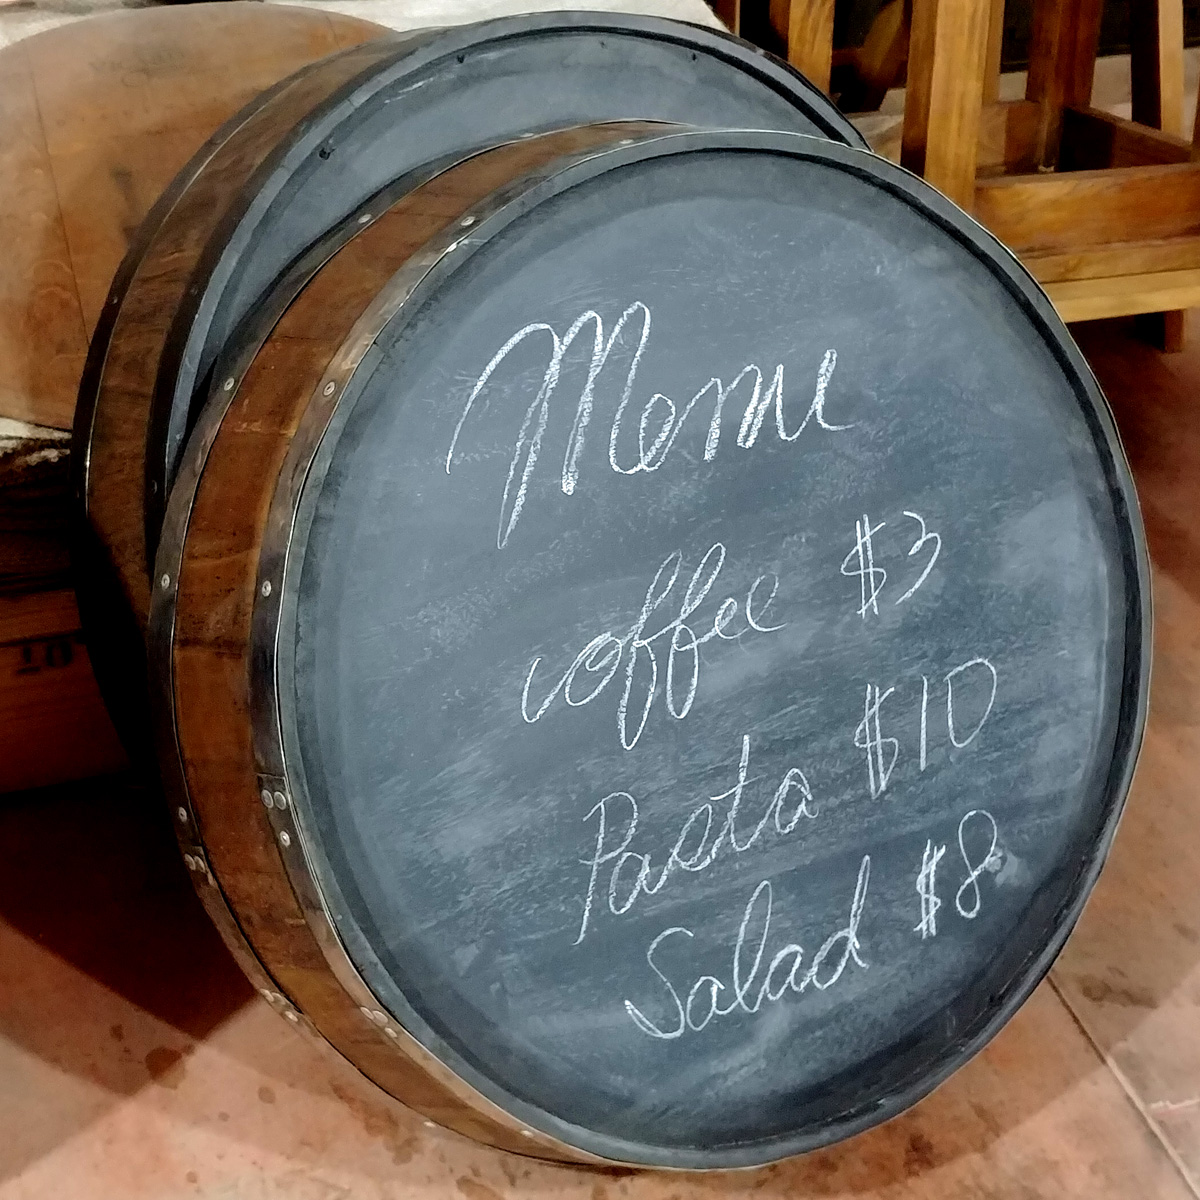 Menu
coffee $3
Pasta $10
Salad $8